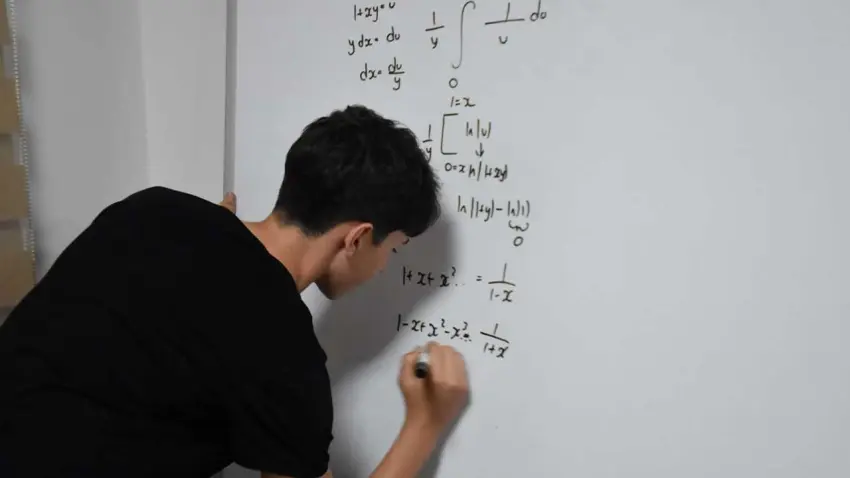 1+xy=u
ydx=du
dx=du/y
1/y ∫ 1/u du
0
1=x
1/y [ ln|u|
↓
0=x ln|1+xy|
ln|1+y|-ln|1|
0
1+x+x².. = 1/1-x
1-x+x²-x³... = 1/1+x